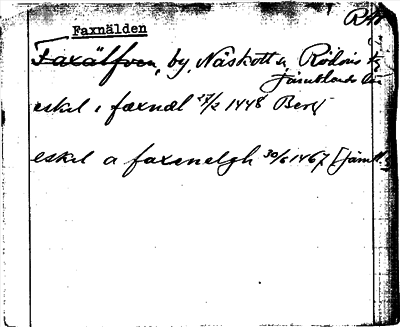 Faxnälden
Faxälfven, by, Näskott sn, Rödöns
Jämtlands län
eskil i fæxnæl 27/2 1448 Berg
eskel a faxenelgh 30/6 1467 [Jämtl.